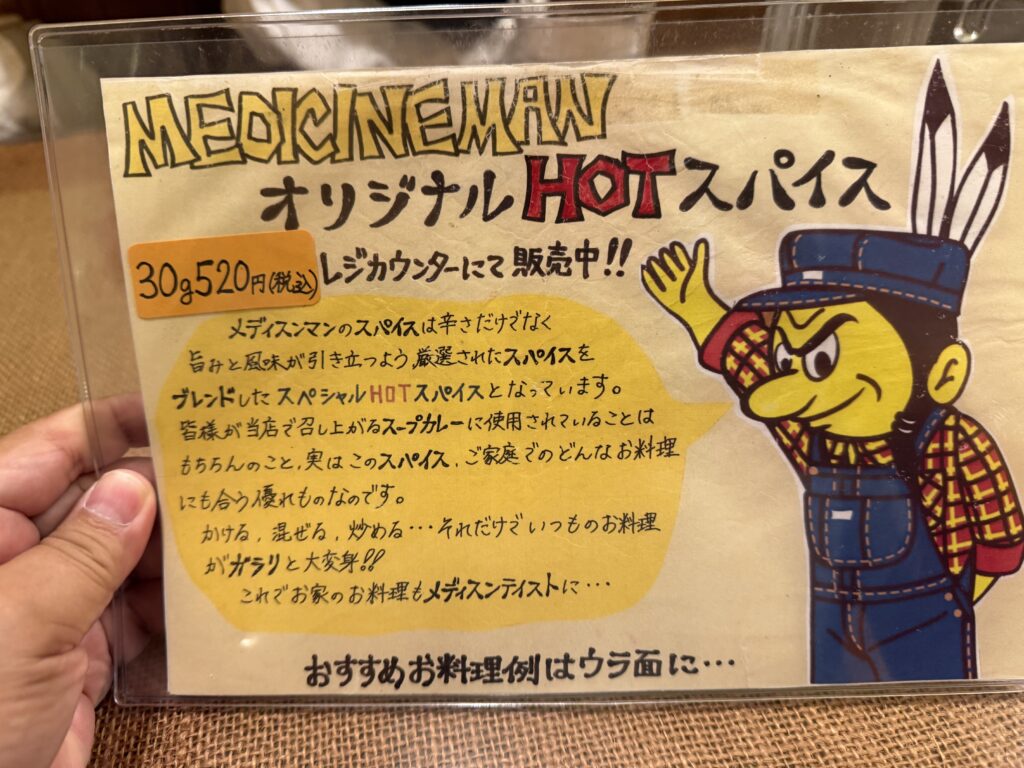 MEDICINEMAN
オリジナルHOTスパイス
30g520円(税込)
レジカウンターにて販売中!!
メディスンマンのスパイスは辛さだけでなく
旨みと風味が引き立つよう、厳選されたスパイスを
ブレンドしたスペシャルHOTスパイスとなっています。
皆様が当店で召し上がるスープカレーに使用されていることは
もちろんのこと、実はこのスパイス、ご家庭でのどんなお料理
にも合う優れものなのです。
かける、混ぜる、炒める…それだけでいつものお料理
がガラリと大変身!!
これでお家のお料理もメディスンテイストに…
おすすめお料理例はウラ面に…